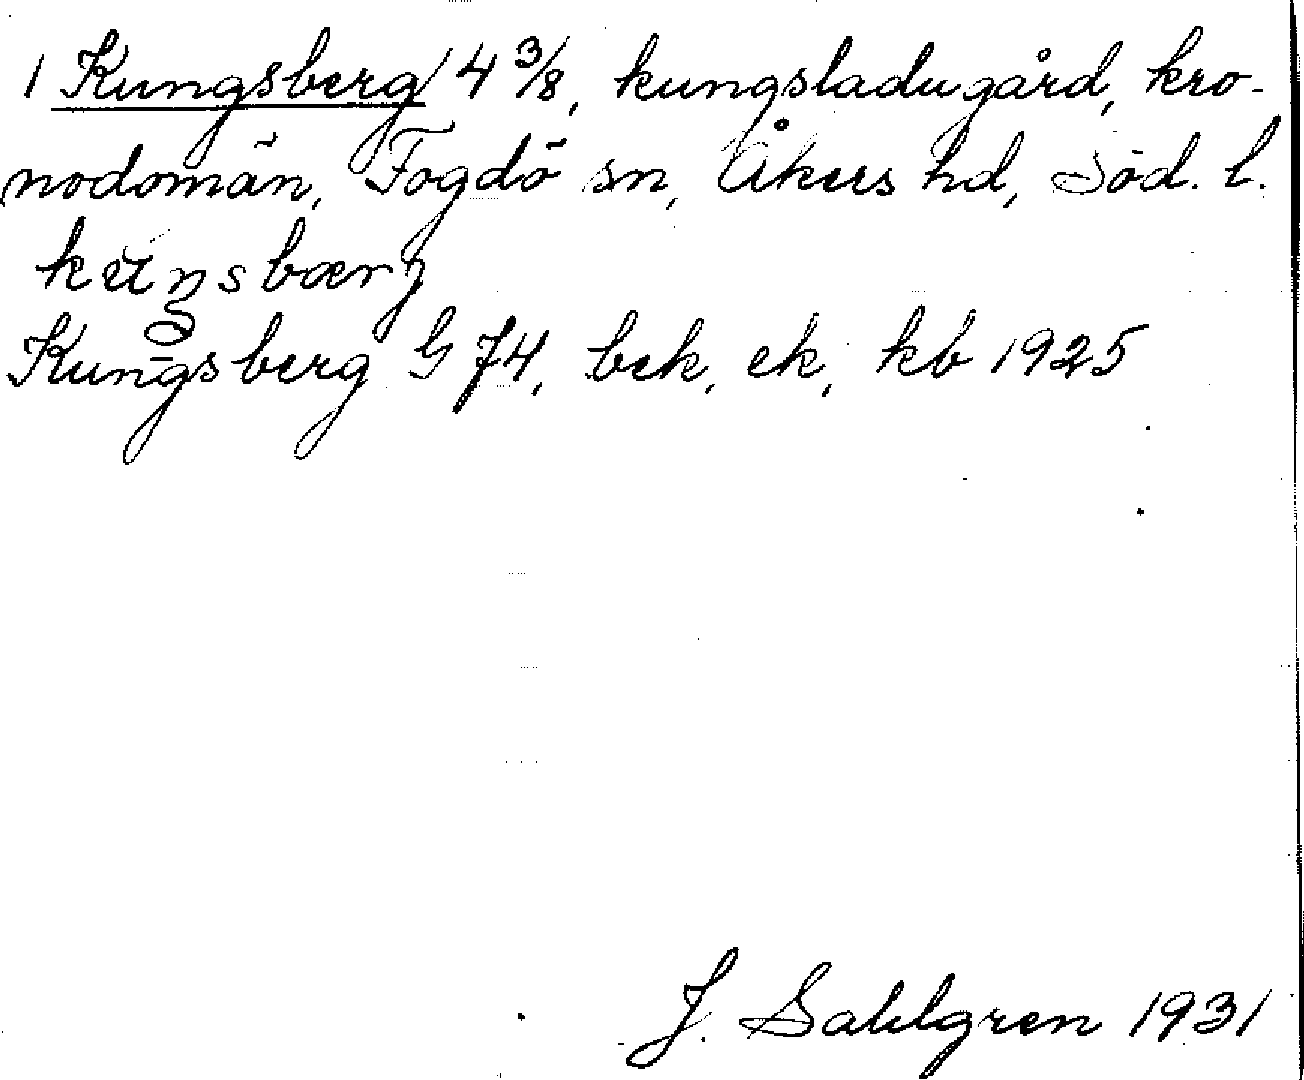 1 Kungsberg 4 3/8, kungsladugård, kro-
nodomän, Fogdö sn, Åkers hd, Söd. l.
Kungsberg G 74, bek, ek, kb 1925
J. Sahlgren 1931